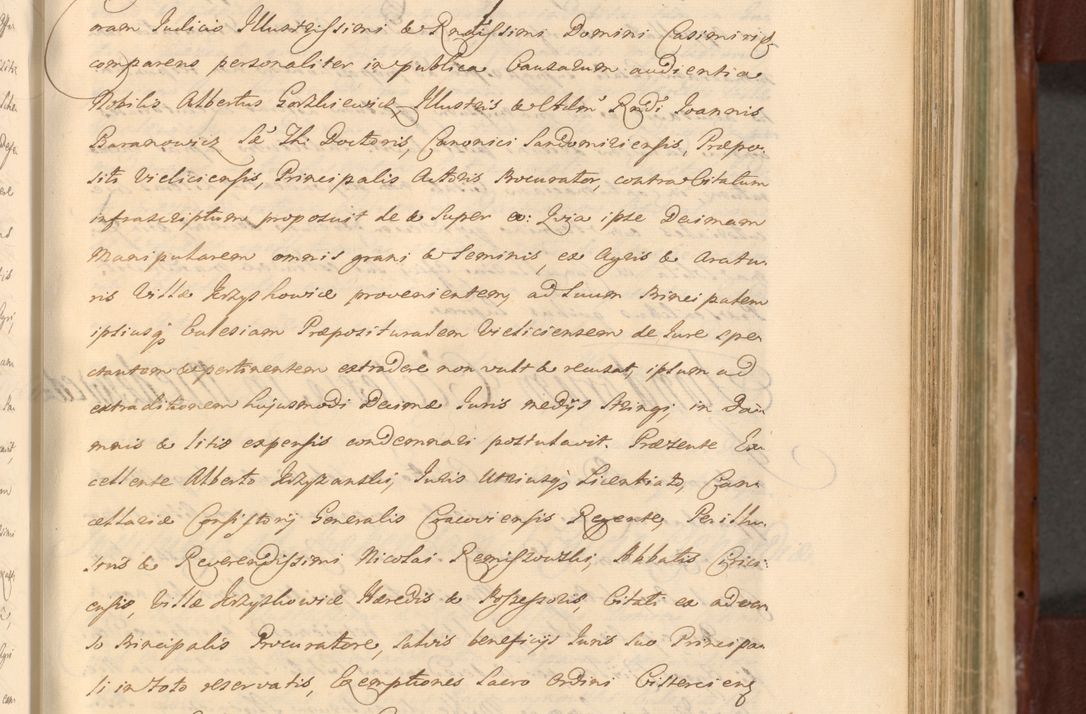 ram Iudicio Illustrissimi & Rndissimi Domini Casimiri &
comparens personaliter in publica Causarum audientia
Nobilis Albertus Gorzkiewicz, Illustris & Adm. Rndi Ioannis
Baranowicz Sae Th. Doctoris, Canonici Sandomiriensis, Præpo-
siti Vieliciensis, Principalis Actoris Procurator, contra Citatum
infrascriptum proposuit de & super eo: Quia ipse Decimam
Manipularem omnis grani & Seminis, ex Agris & aratu-
ris Villæ Krzyszkowice provenientem, ad Suum Principalem
ipsiusq Ecclesiam Præposituralem Vieliciensem de Iure spe-
ctantem & pertinentem extradere non vult & recusat, ipsum ad
extraditionem hujusmodi Decimæ Iuris medijs stringi, in Da-
mnis & litis expensis condemnari postulavit. Præsente Ex-
cellente Alberto Krzyzanski, Iuris Utriusq Licentiato, Can-
cellariæ Consistorij Generalis Cracoviensis Regente, Perillu-
stris & Reverendissimi Nicolai Remiszowski, Abbatis Cirici-
ensis, Villæ Krzyszkowice Hæredis & Possessoris, Citati ex adver-
so Principalis Procuratore, salvis beneficijs Iuris suo Principa-
li in toto reservatis, Exemptiones Sacro Ordini Cisterciens